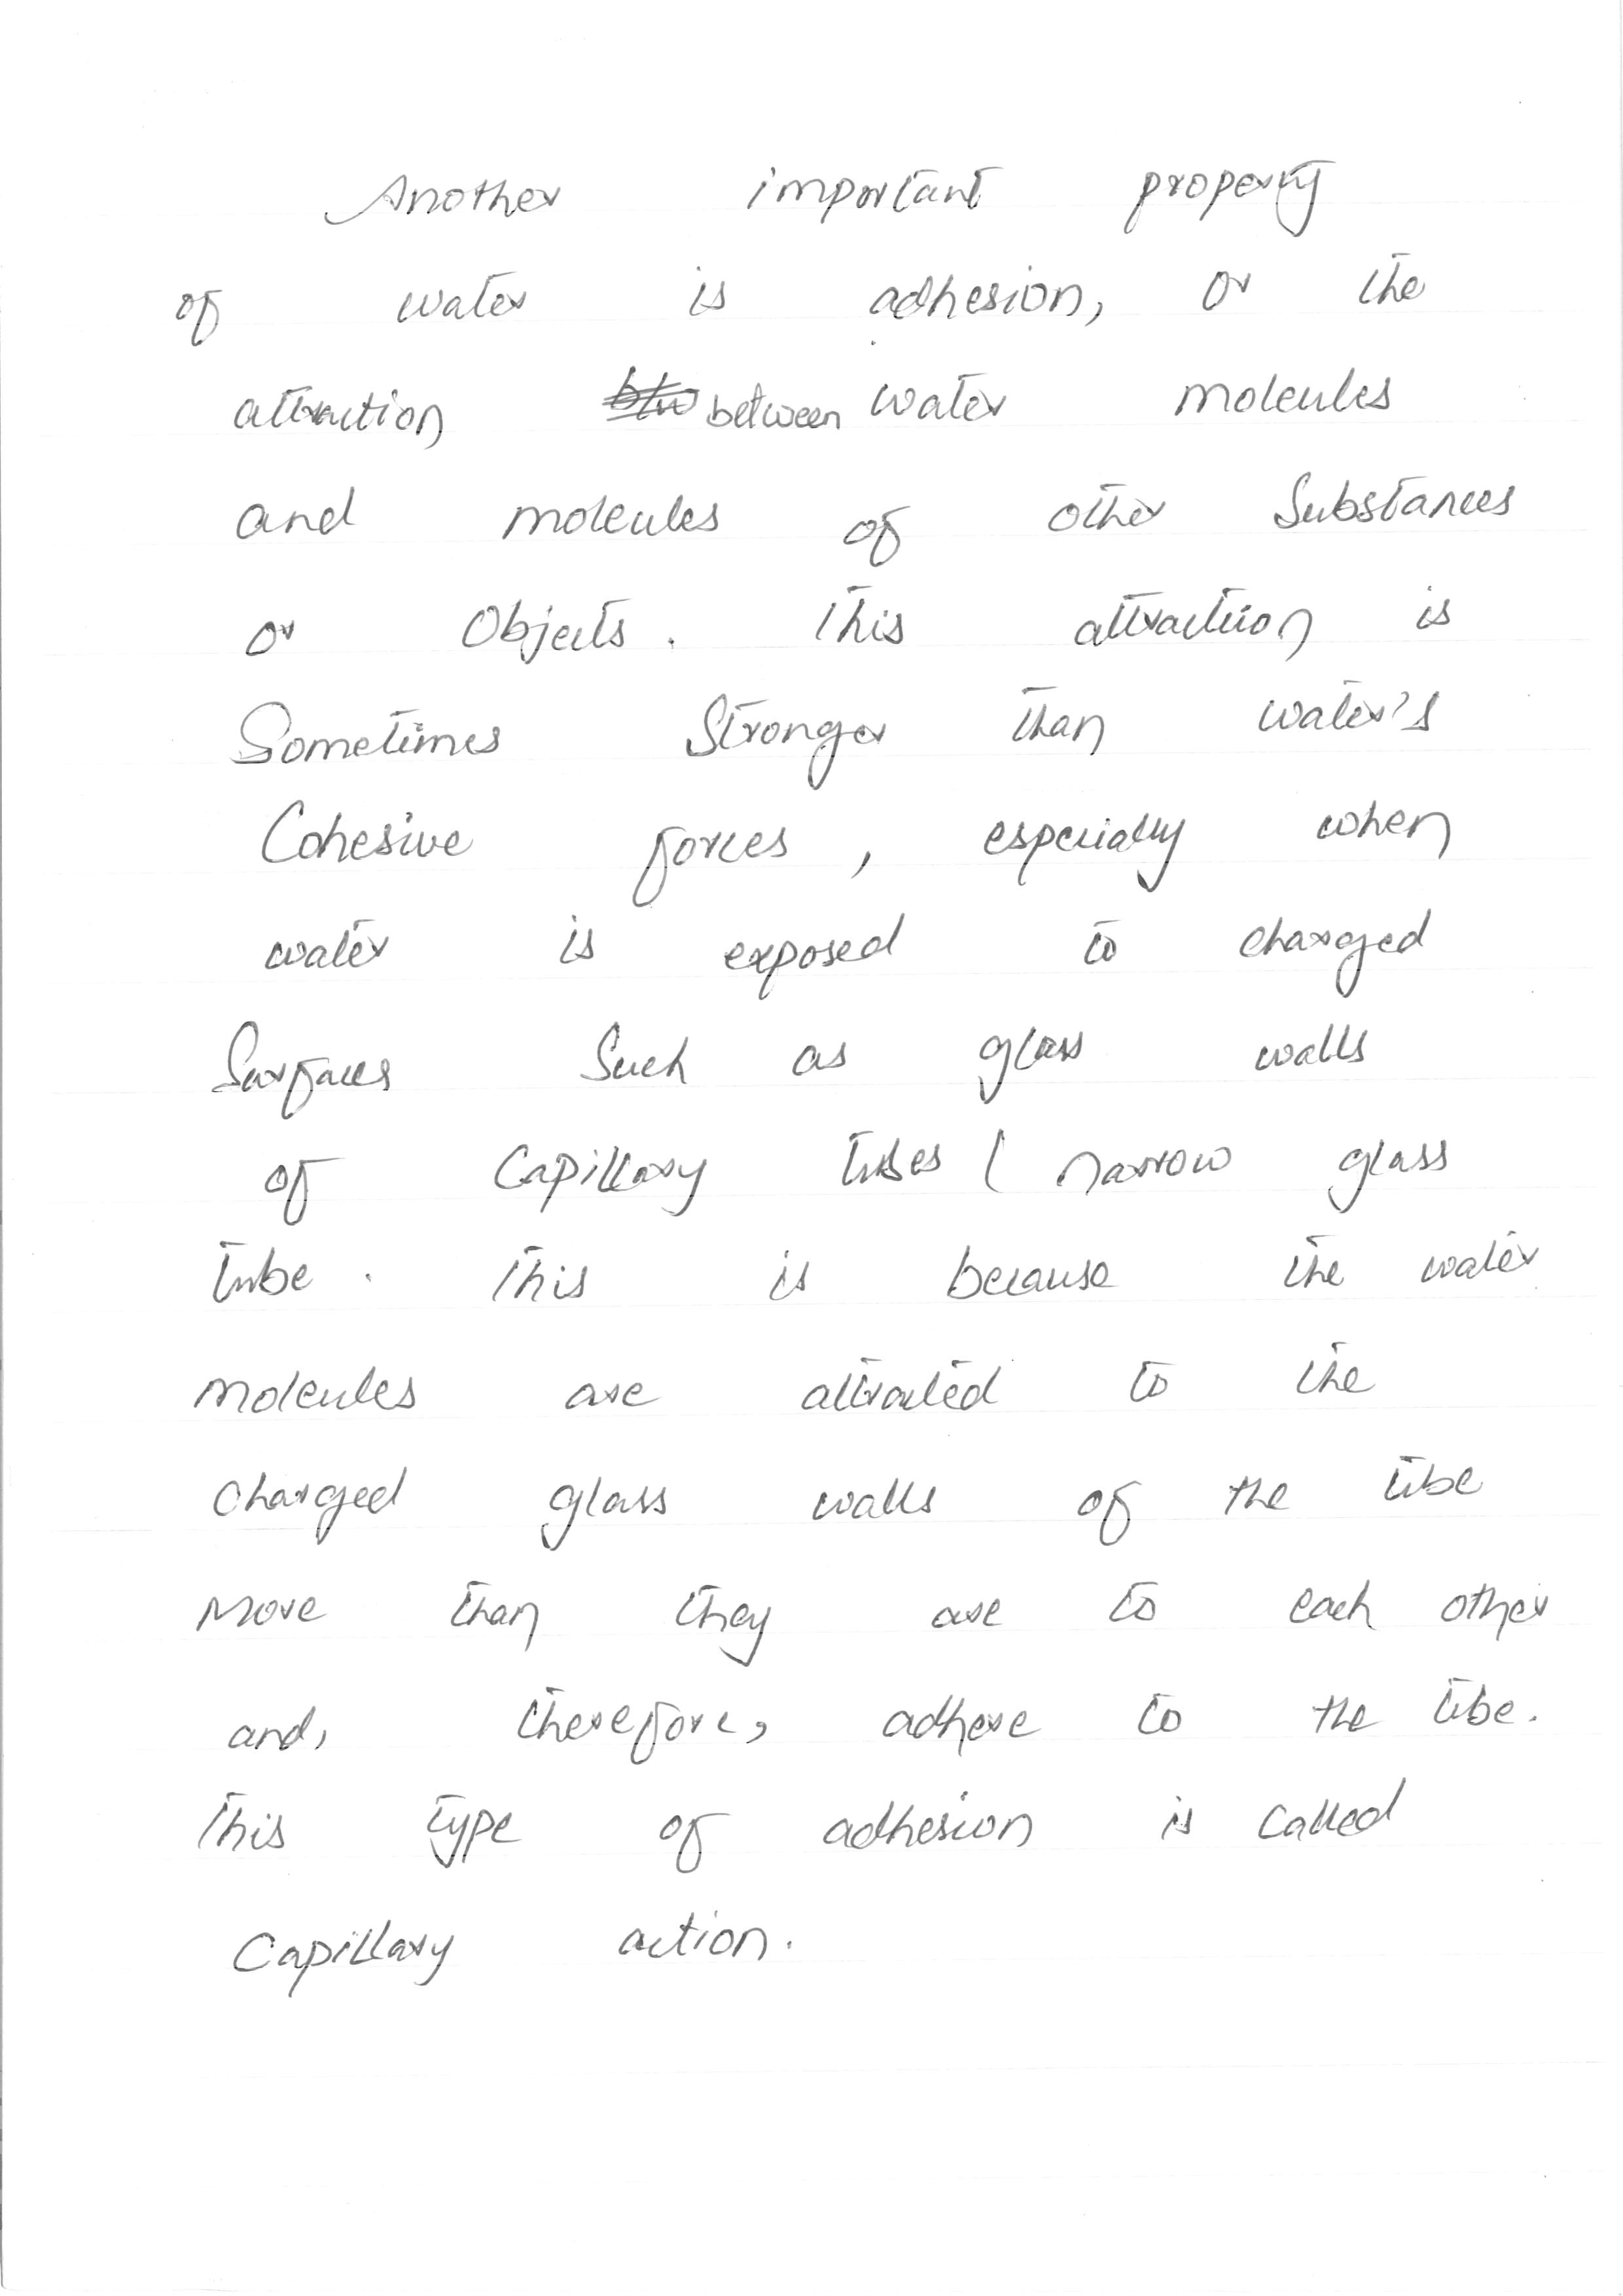 Another important property
of water is adhesion, or the
attraction between water molecules
and molecules of other Substances
or Objects. This attraction is
Sometimes Stronger than water's
Cohesive forces, especially when
water is exposed to charged
Surfaces Such as glass walls
of Capillary tubes ( narrow glass
tube. This is because the water
molecules are attracted to the
Charged glass walls of the tube
More than they are to each other
and, therefore, adhere to the tube.
This type of adhesion is called
Capillary action.